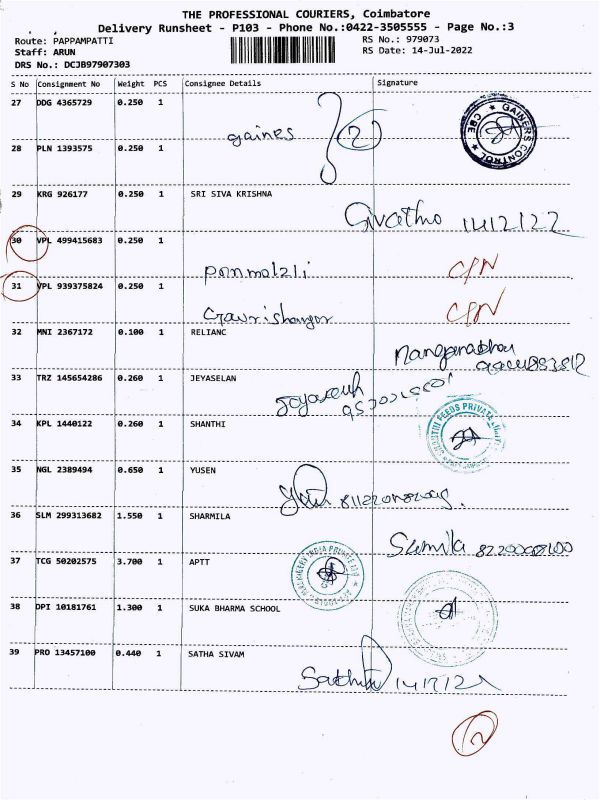 THE PROFESSIONAL COURIERS, Coimbatore
Delivery Runsheet - P103 - Phone No.:0422-3505555 - Page No.:3
Route: PAPPAMPATTI RS No.: 979073
Staff: ARUN RS Date: 14-Jul-2022
DRS No.: DCJB97907303
S No Consignment No Weight PCS Consignee Details Signature
27 DDG 4365729 0.250 1
GAINERS CONTROL ★ CBE ★
gaines 2
28 PLN 1393575 0.250 1
29 KRG 926177 0.250 1 SRI SIVA KRISHNA
30 VPL 499415683 0.250 1
C/N
31 VPL 939375824 0.250 1
C/N
32 MNI 2367172 0.100 1 RELIANC
33 TRZ 145654286 0.260 1 JEYASELAN
34 KPL 1440122 0.260 1 SHANTHI
FEEDS PRIVATE
35 NGL 2389494 0.650 1 YUSEN
36 SLM 299313682 1.550 1 SHARMILA
Sumila
37 TCG 50202575 3.700 1 APTT
INDIA PRIVATE
38 DPI 10181761 1.300 1 SUKA BHARMA SCHOOL
39 PRO 13457100 0.440 1 SATHA SIVAM